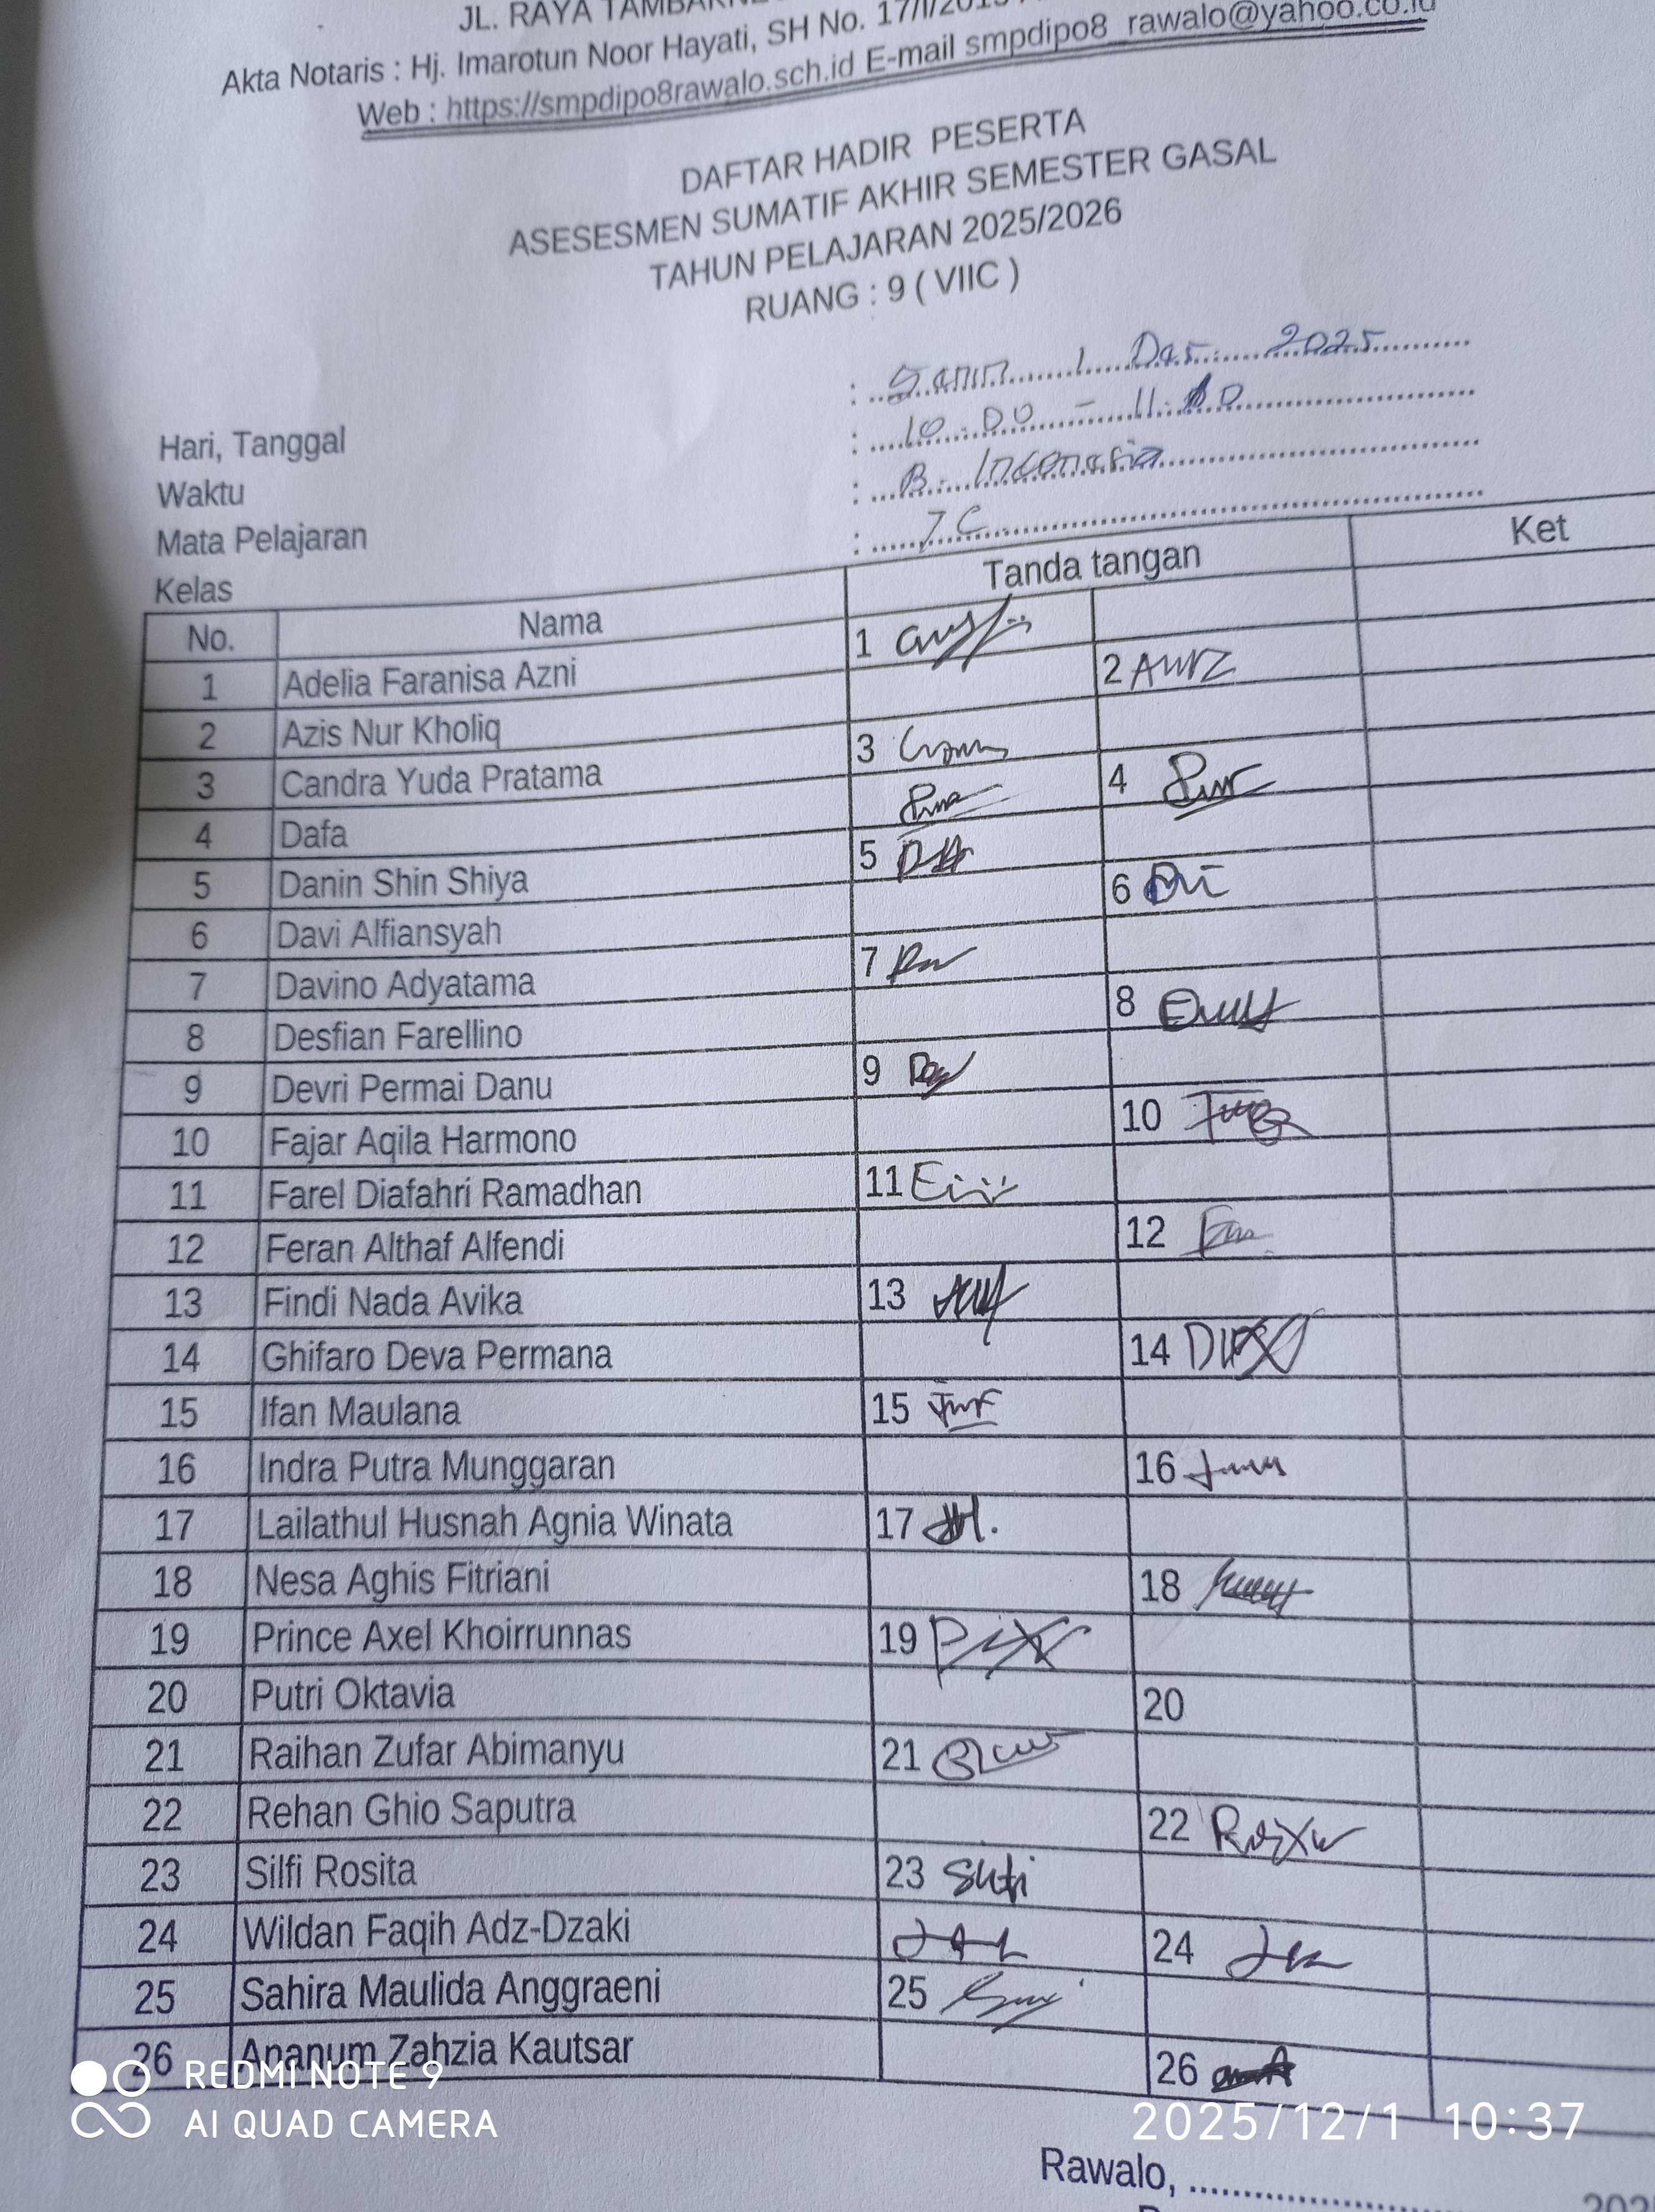 JL. RAYA
Akta Notaris : Hj. Imarotun Noor Hayati, SH No. 17/I/2015
Web : https://smpdipo8rawalo.sch.id E-mail smpdipo8_rawalo@yahoo.co.id
DAFTAR HADIR PESERTA
ASESESMEN SUMATIF AKHIR SEMESTER GASAL
TAHUN PELAJARAN 2025/2026
RUANG : 9 ( VIIC )
Hari, Tanggal : Senin 1 Des 2025
Waktu : 10.00 - 11.
Mata Pelajaran : B. Indonesia
Kelas : 7C
No. Nama Tanda tangan Ket
1 Adelia Faranisa Azni 1
2 Azis Nur Kholiq 2
3 Candra Yuda Pratama 3
4 Dafa 4
5 Danin Shin Shiya 5
6 Davi Alfiansyah 6
7 Davino Adyatama 7
8 Desfian Farellino 8
9 Devri Permai Danu 9
10 Fajar Aqila Harmono 10
11 Farel Diafahri Ramadhan 11
12 Feran Althaf Alfendi 12
13 Findi Nada Avika 13
14 Ghifaro Deva Permana 14
15 Ifan Maulana 15
16 Indra Putra Munggaran 16
17 Lailathul Husnah Agnia Winata 17
18 Nesa Aghis Fitriani 18
19 Prince Axel Khoirrunnas 19
20 Putri Oktavia 20
21 Raihan Zufar Abimanyu 21
22 Rehan Ghio Saputra 22
23 Silfi Rosita 23
24 Wildan Faqih Adz-Dzaki 24
25 Sahira Maulida Anggraeni 25
26 Ananum Zahzia Kautsar 26
REDMI NOTE 9
AI QUAD CAMERA
2025/12/1 10:37
Rawalo, ........................